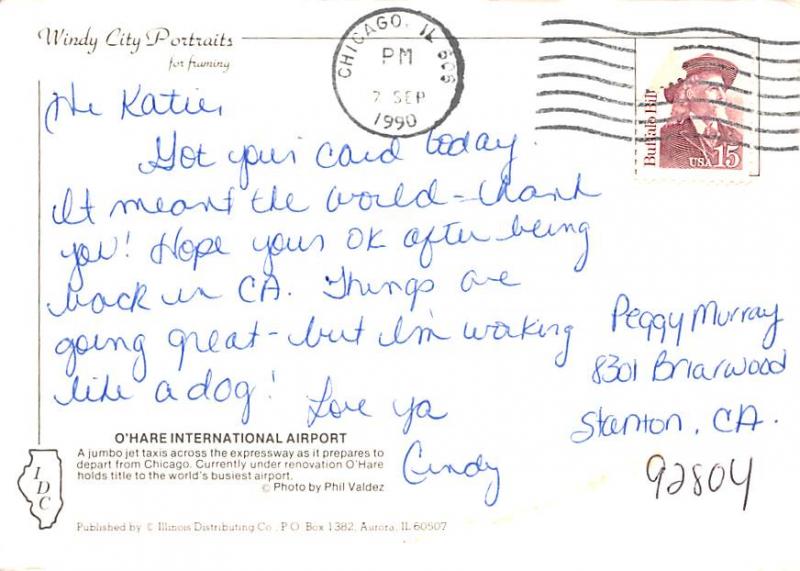 Windy City Portraits
for framing
CHICAGO, IL 606
PM
7 SEP
1990
Buffalo Bill
USA 15
Hi Katie,
Got your card today.
It meant the world - thank
you! Hope your OK after being
back in CA. Things are
going great - but I'm working
like a dog!
Love ya
Cindy
Peggy Murray
8301 Briarwood
Stanton, CA.
92804
O'HARE INTERNATIONAL AIRPORT
A jumbo jet taxis across the expressway as it prepares to
depart from Chicago. Currently under renovation O'Hare
holds title to the world's busiest airport.
© Photo by Phil Valdez
IDC
Published by © Illinois Distributing Co., P.O. Box 1382, Aurora, IL 60507